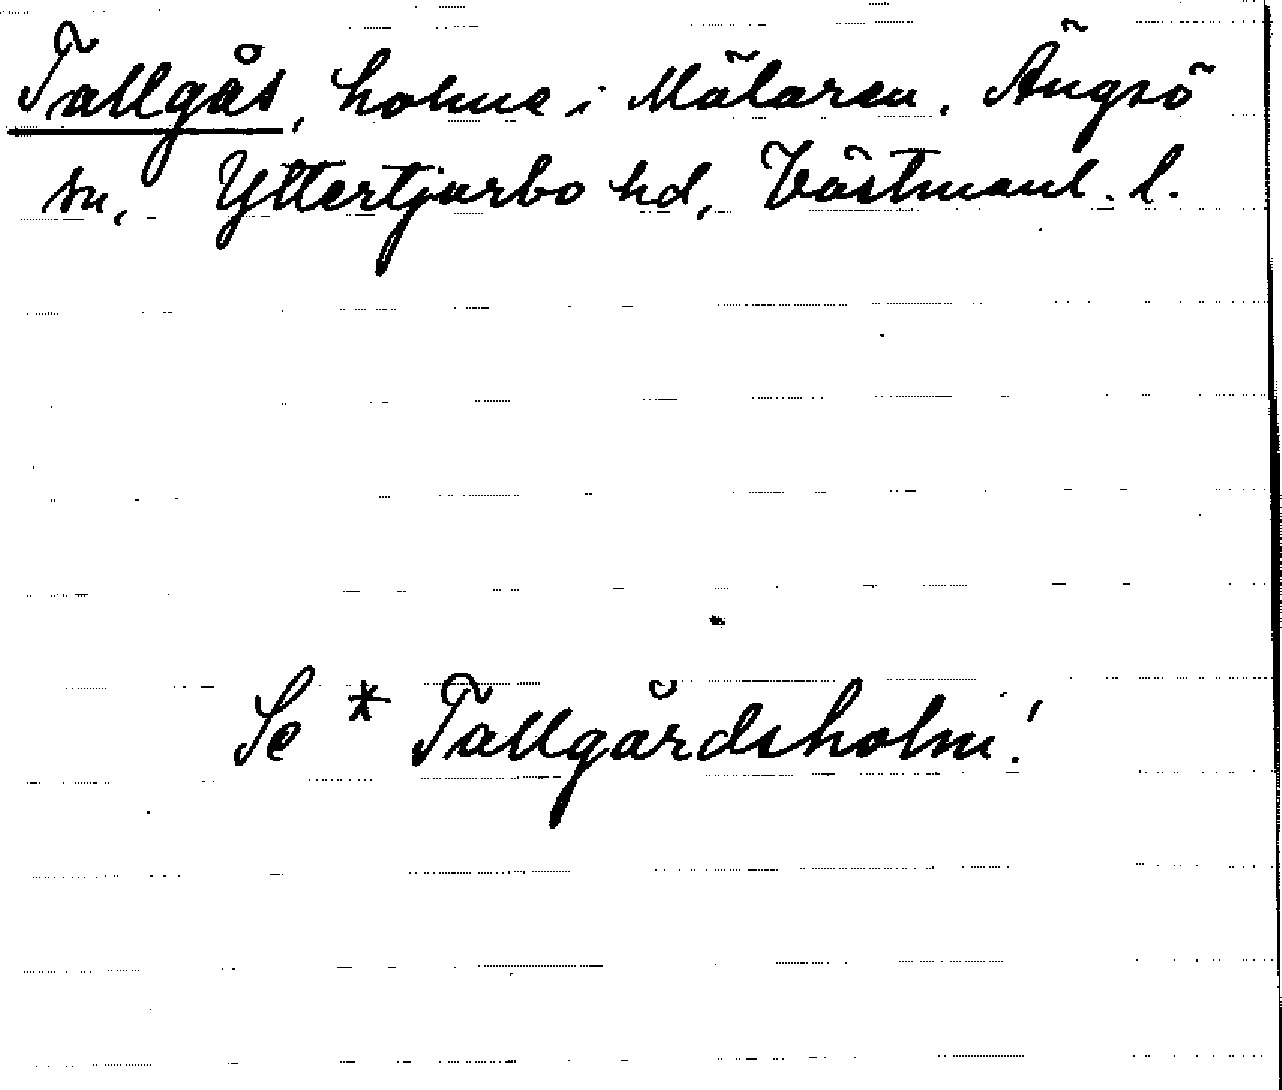 Tallgås, holme i Mälaren, Ängsö
sn, Yttertjurbo hd, Västmanl. l.
Se * Tallgårdsholm!